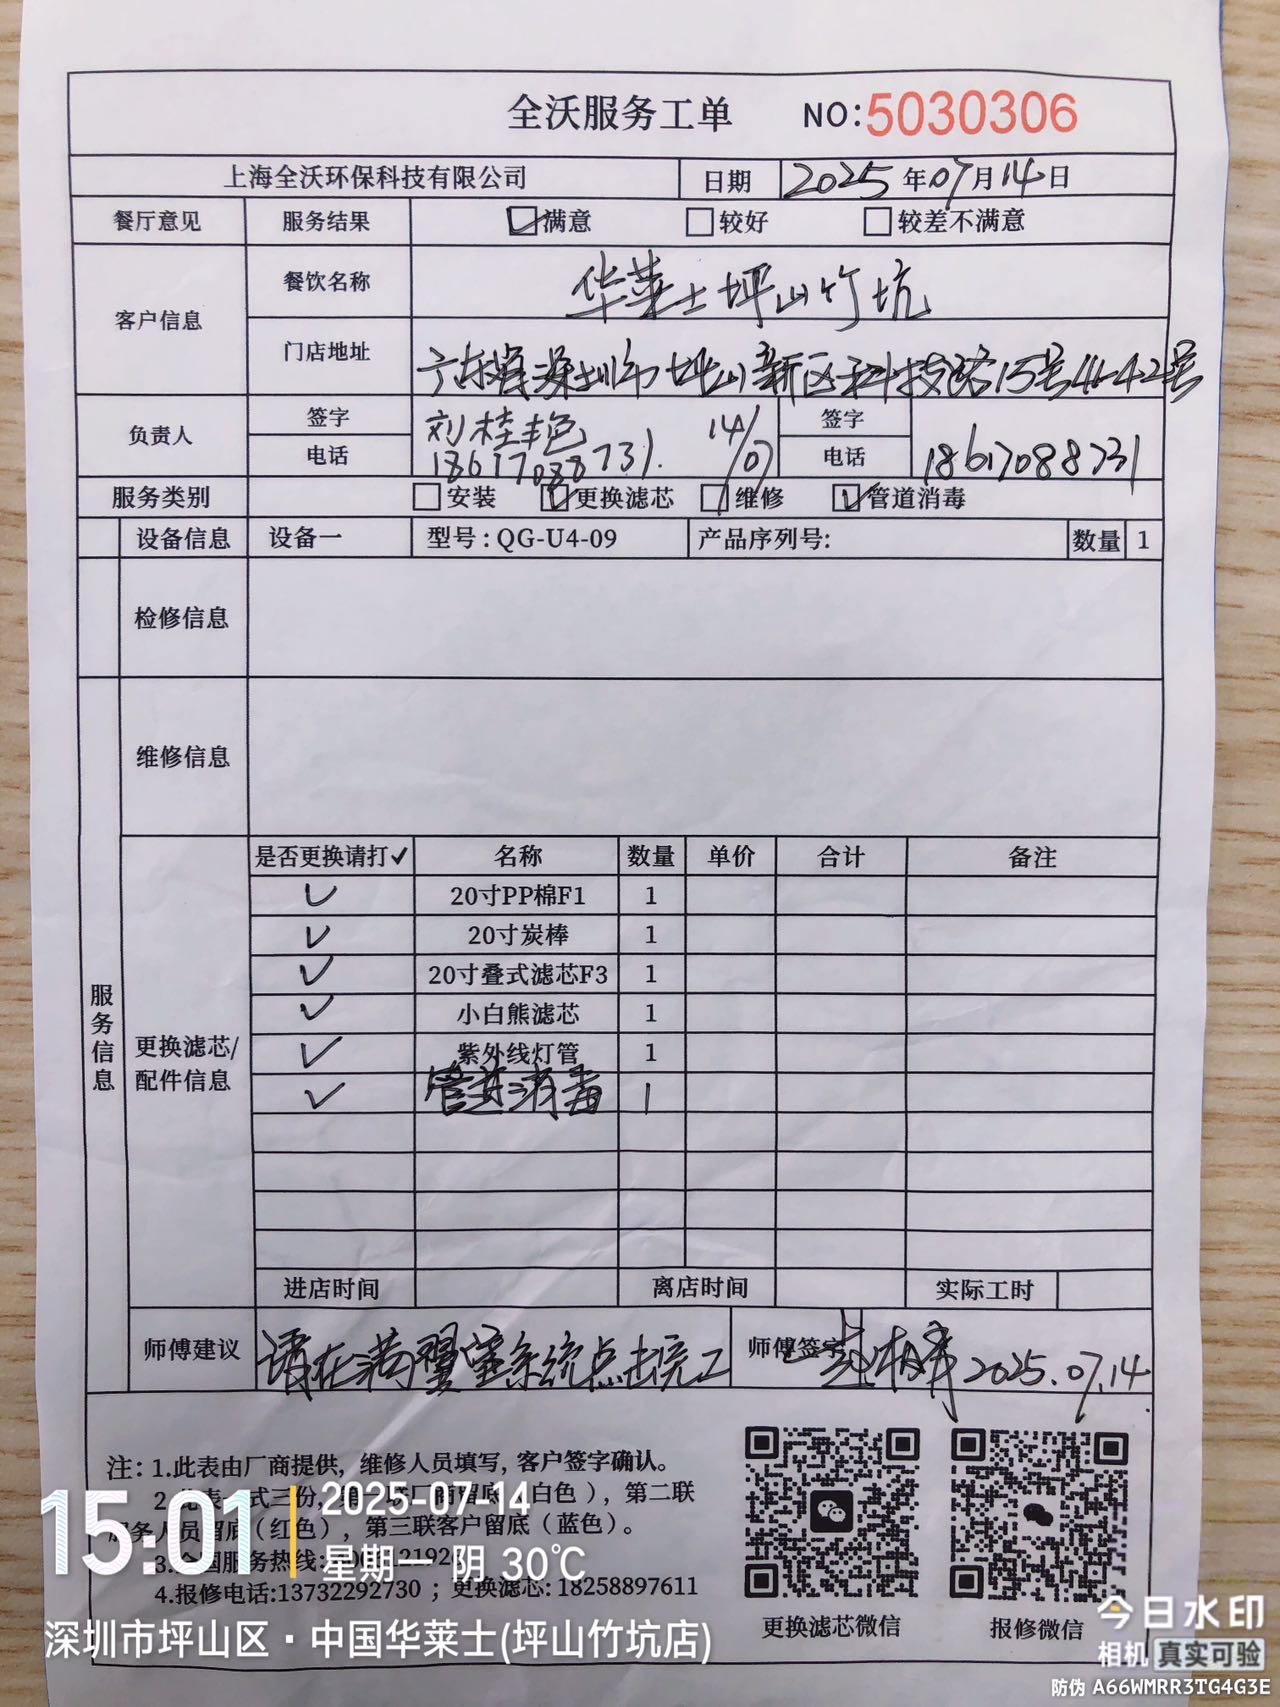 全沃服务工单 NO:5030306
上海全沃环保科技有限公司 日期 2025年07月14日
餐厅意见 服务结果 满意 较好 较差不满意
客户信息 餐饮名称 华莱士坪山竹坑
门店地址 广东省深圳市坪山新区科技路15号41-42号
负责人 签字 刘桂艳 14/07 签字
电话 18617088731. 电话 18617088731
服务类别 安装 更换滤芯 维修 管道消毒
设备信息 设备一 型号:QG-U4-09 产品序列号: 数量 1
检修信息
维修信息
服务信息
更换滤芯/
配件信息
是否更换请打✓ 名称 数量 单价 合计 备注
✓ 20寸PP棉F1 1
✓ 20寸炭棒 1
✓ 20寸叠式滤芯F3 1
✓ 小白熊滤芯 1
✓ 紫外线灯管 1
✓ 管道消毒 1
进店时间 离店时间 实际工时
师傅建议 请在满翼 系统点击完工 师傅签字 2025.07.14
注: 1.此表由厂商提供, 维修人员填写, 客户签字确认。
2.此表一式三份, 第一联厂商留底(白色), 第二联
服务人员留底(红色), 第三联客户留底(蓝色)。
3.全国服务热线:
4.报修电话:13732292730 ; 更换滤芯: 18258897611
更换滤芯微信 报修微信
15:01 2025-07-14
星期一 阴 30℃
深圳市坪山区·中国华莱士(坪山竹坑店)
今日水印
相机 真实可验
防伪 A66WMRR3TG4G3E